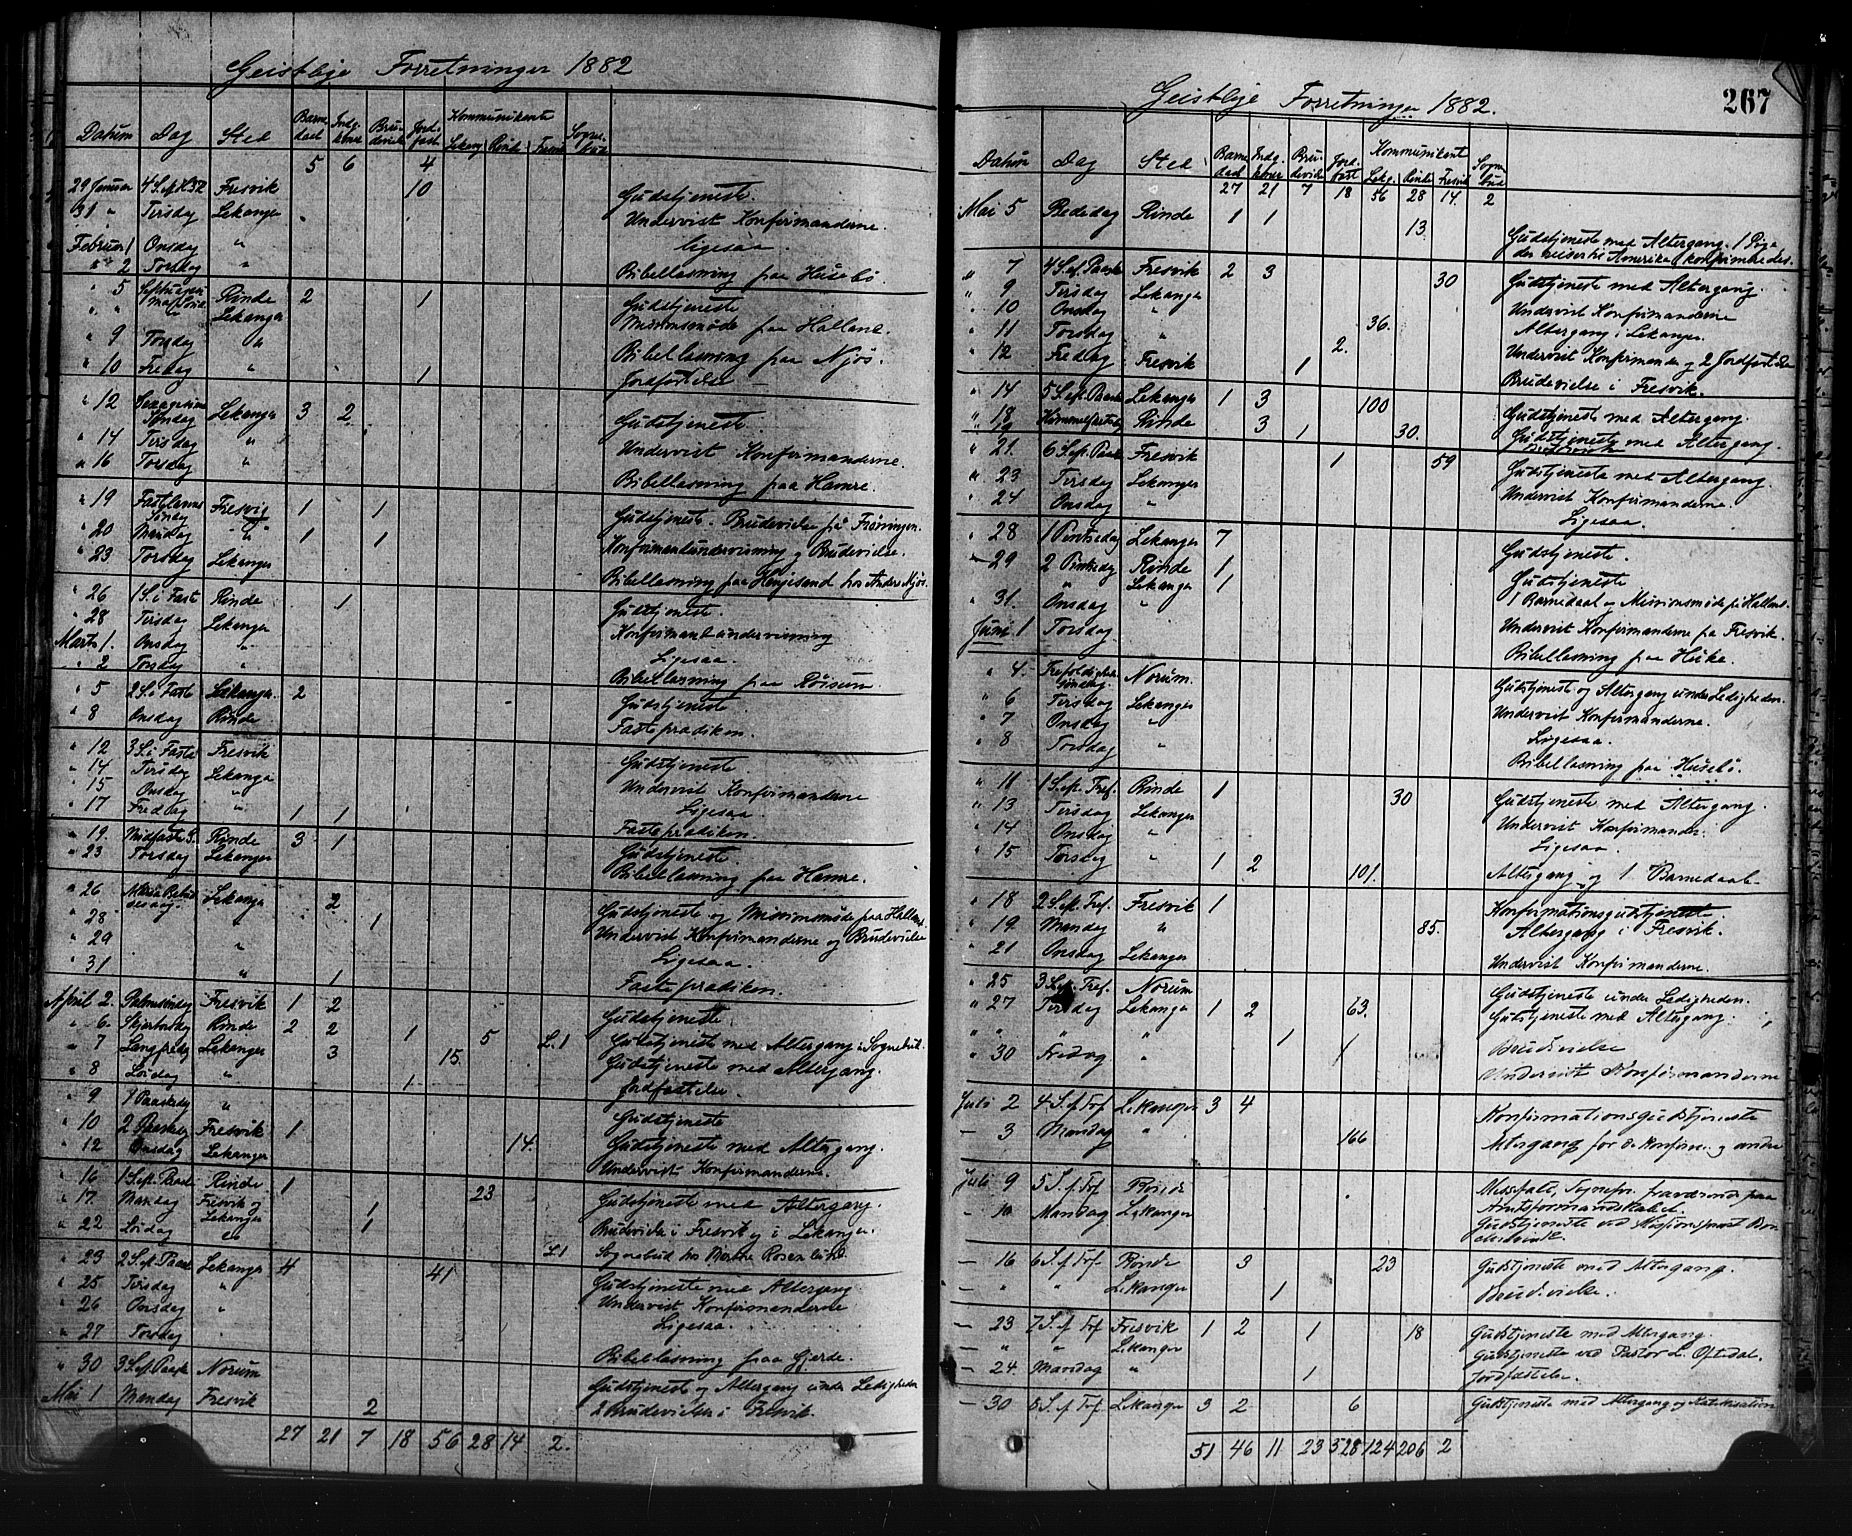 Geistlige Forretninger 1882
Datum Dag Sted Barnedaab Indg. koner Brudevielse Jordfast Kommunikante Lekang Rinde Fresvik Sognebud
5 6 4
29 Januar 4 S.ef.H.3K Fresvik 10 Gudstjeneste.
31 " Tirsdag Lekanger Undervist Konfirmanderne.
Februar 1 Onsdag " ligesaa
" 2 Torsdag " Bibellæsning paa Husebø
" 5 Rinde 2 1 Gudstjeneste
" " Lekanger Missionsmøde paa Hallene.
" 9 Torsdag " Bibellæsning paa Njøs.
" 10 Fredag " 1 Jordfæstelse
" 12 Sexagesima Søndag Lekanger 3 2 Gudstjeneste.
" 14 Tirsdag " Undervist Konfirmanderne.
" 16 Torsdag " Bibellæsning paa Hamre.
" 19 Fastelavns Søndag Fresvig 1 1 Gudstjeneste. Brudevielse på Frøningen.
" 20 Mandag " 1 1 Konfirmandundervisning og Brudevielse.
" 23 Torsdag Lekanger Bibellæsning paa Hengesand hos Anders Njøs.
" 26 1 S. i Fast Rinde 1 Gudstjeneste
" 28 Tirsdag Lekanger Konfirmandundervisning
Marts 1. Onsdag " Ligesaa.
" 2 Torsdag " Bibellæsning paa Røisum.
" 5 2 S. i Faste Lekanger 2 Gudstjeneste
" 8 Onsdag Rinde Fasteprædiken.
" 12 3 S. i Faste Fresvik Gudstjeneste.
" 14 Tirsdag Lekanger Undervist Konfirmanderne
" 15 Onsdag " Ligesaa.
" 17 Fredag " 1 1 Fasteprædiken.
" 19. Midfaste S. Rinde 3 1 Gudstjeneste.
" 23 Torsdag Lekanger Bibellæsning paa Hamre.
" 26 Mariæ Bebudelsesdag Lekanger 2 Gudstjeneste og Missionsmøde paa Halland
" 28 " 1 Undervist Konfirmanderne og Brudevielse
" 29 " Ligesaa.
" 31 " 1 Fasteprædiken.
April 2. Palmesøndag Fresvik 1 2 Gudstjeneste.
" 6 Skjertorsdag Rinde 2 2 1 5 L.1 Gudstjeneste med Altergang & Sognebud.
" 7 Langfredag Lekanger 3 15. Gudstjeneste med Altergang.
" 8 Lørdag " 1 Jordfæstelse.
" 9 1 Paaskedg " Gudstjeneste
" 10 2 Paaskedg Fresvik 1 14. Gudstjeneste med Altergang.
" 12 Onsdag Lekanger Undervist Konfirmanderne.
" 16 1 S.ef. Paaske Rinde 1 23 Gudstjeneste med Altergang.
" 17 Mandag Fresvik og Lekanger 1 Brudevielse i Fresvik og i Lekanger.
" 22 Lørdag " 1 L.1 Sognebud hos Marthe Rosenlund
" 23 2 S.ef. Paaske Lekanger 4 41 Gudstjeneste med Altergang
" 25 Tirsdag " Undervist Konfirmanderne
" 26 Onsdag " Ligesaa.
" 27 Torsdag " Bibellæsning paa Gjerde.
" 30 3 S.ef. Paask Norum Gudstjeneste og Altergang under Ledigheden
Mai 1 Mandag Fresvik 2 2 Brudevielser i Fresvik.
27 21 7 18 56 28 14 2.
Geistlige Forretninger 1882.
267
Datum Dag Sted Barnedaab Indg. koner Brudevielse Jordfast Kommunikant Lekg. Rinde Fresvik Sognebud
27 21 7 18 56 28 14. 2
Mai 5 Bededag Rinde 1 1 13. Gudstjeneste med Altergang. 1 Pige
der reiser til Amerika konfirmeredes.
" 7 4 S.ef. Paaske Fresvik 2 3 30 Gudstjeneste med Altergang.
" 9 Tirsdag Lekanger Undervist Konfirmanderne
" 10 Onsdag " 36. Altergang i Lekanger.
" 11 Torsdag " 2. Undervist Konfirmander og 2 Jordfæstelser
" 12 Fredag Fresvik 1 Brudevielse i Fresvik.
" 14 5 S.ef. Paaske Lekanger 1 3 100 Gudstjeneste med Altergang.
" 18 Himmelfartsdg Rinde 3 1 30. Gudstjeneste med Altergang.
" 21. 6 S.ef. Paask Fresvik 1 59 Gudstjeneste med Altergang.
" 23 Tirsdag Lekanger Undervist Konfirmanderne.
" 24 Onsdag " Ligesaa.
" 28 1 Pintsedag Lekanger 7 Gudstjeneste.
" 29 2 Pintsedg Rinde 1 Gudstjeneste
" " Lekanger 1 1 Barnedaab og Missionsmøde på Hallene.
" 31. Onsdag " Undervist Konfirmanderne fra Fresvik.
Juni 1 Torsdag Bibellæsning paa Henke.
" 4. Trefoldigheds Søndag. Norum. Gudstjeneste og Altergang under Ledigheden.
" 6 Tirsdag Lekanger Undervist Konfirmanderne.
" 7 Onsdag " Ligesaa.
" 8 Torsdag " Bibellæsning paa Husebø.
" 11 1 S.eft. Tref. Rinde 1 30 Gudstjeneste med Altergang.
" 13 Tirsdag Lekanger Undervist Konfirmander.
" 14 Onsdag " Ligesaa.
" 15 Torsdag " 1 2 101. Altergang og 1 Barnedaab
" 18 2 S.eft. Tref. Fresvik 1 Konfirmationsgudstjeneste.
" 19. Mandag " 85. Altergang i Fresvik.
" 21 Onsdag Lekanger Undervist Konfirmanderne.
" 25 3 S.eft. Tref. Norum Gudstjeneste under Ledigheden.
" 27 Tirsdag Lekanger 1 2 63. Gudstjeneste med Altergang.
" " " " 1 Brudevielse
" 30 Fredag " 1 Undervist Konfirmanderne
Juli 2 4 S.ef Tref Lekanger 3 4 Konfirmationsgudstjeneste
— 3 Mandag " 166 Altergang for de konfirm. og andre
Juli 9 5 S.ef Tref Rinde Messefald, Sognepr. fraværende paa
Amtsformandskabet.
— 10 Mandag Lekanger Gudstjeneste ved Missionsprest
— 16 6 S.ef Tref. Rinde 3 23 Gudstjeneste med Altergang.
— " " Lekanger 1 Brudevielse.
— 23 7 S.ef Tref Fresvik 1 2 1 18 Gudstjeneste med Altergang.
— " " Lekanger Gudstjeneste ved Pastor L. Oftedal.
— 24. Mandag " 1 Jordfæstelse.
— 30 8 S.ef Tref Lekanger 3 2 6 Gudstjeneste med Altergang og Katekisation
51 46 11 23 528 124 206 2